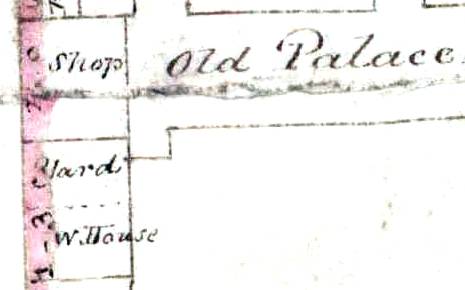 Shop
Old Palace
Yard
W. House